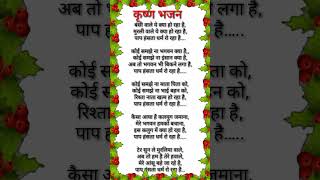 कृष्ण भजन
बंसी वाले ये क्या हो रहा है,
मुरली वाले ये क्या हो रहा है,
पाप हंसता धर्म रो रहा है....
कोई समझे ना भगवान क्या है,
कोई समझे ना इंसान क्या है,
अब तो भगवन भी बिकने लगा है,
पाप हंसता धर्म रो रहा है...
कोई समझे ना माता पिता को,
कोई समझे ना भाई बहन को,
रिश्ता नाता खत्म हो रहा है,
पाप हंसता धर्म रो रहा है...
कैसा आया है कलयुग जमाना,
मेरे भगवन हमको बचाना,
इस कलयुग में क्या हो रहा है,
पाप हंसता धर्म रो रहा है....
टेर सुन ले मुरलिया वाले,
अब तो हम है तेरे हवाले,
मेरे आंसू बहे जा रहे है,
पाप हंसता धर्म रो रहा है...